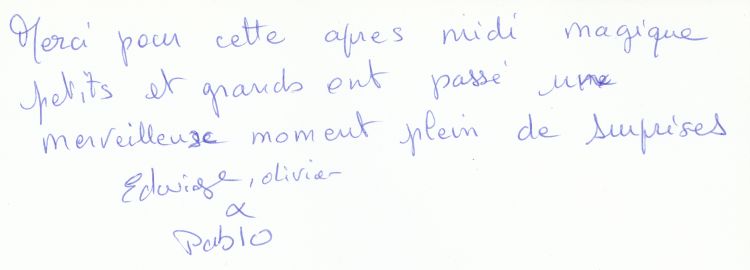 Merci pour cette apres midi magique
petits et grands ont passé une
merveilleuse moment plein de surprises
Edwige, olivier
&
Pablo